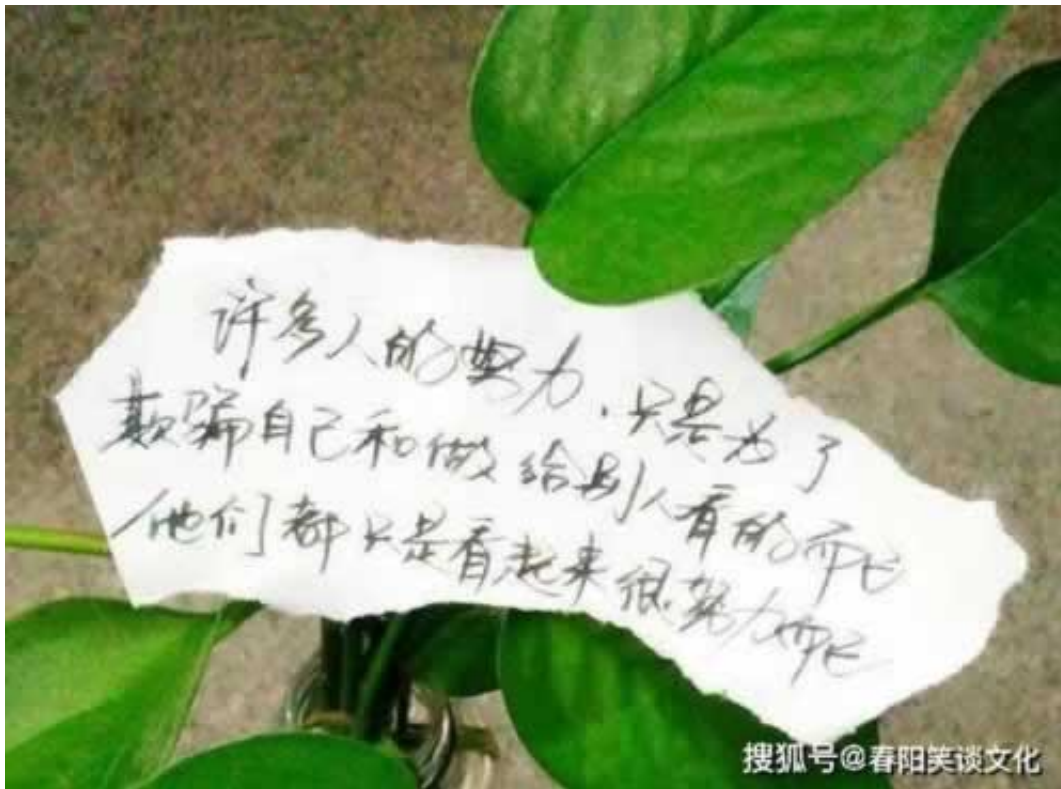 许多人的努力，只是为了
欺骗自己和做给别人看的而已
他们都只是看起来很努力而已
搜狐号@春阳笑谈文化